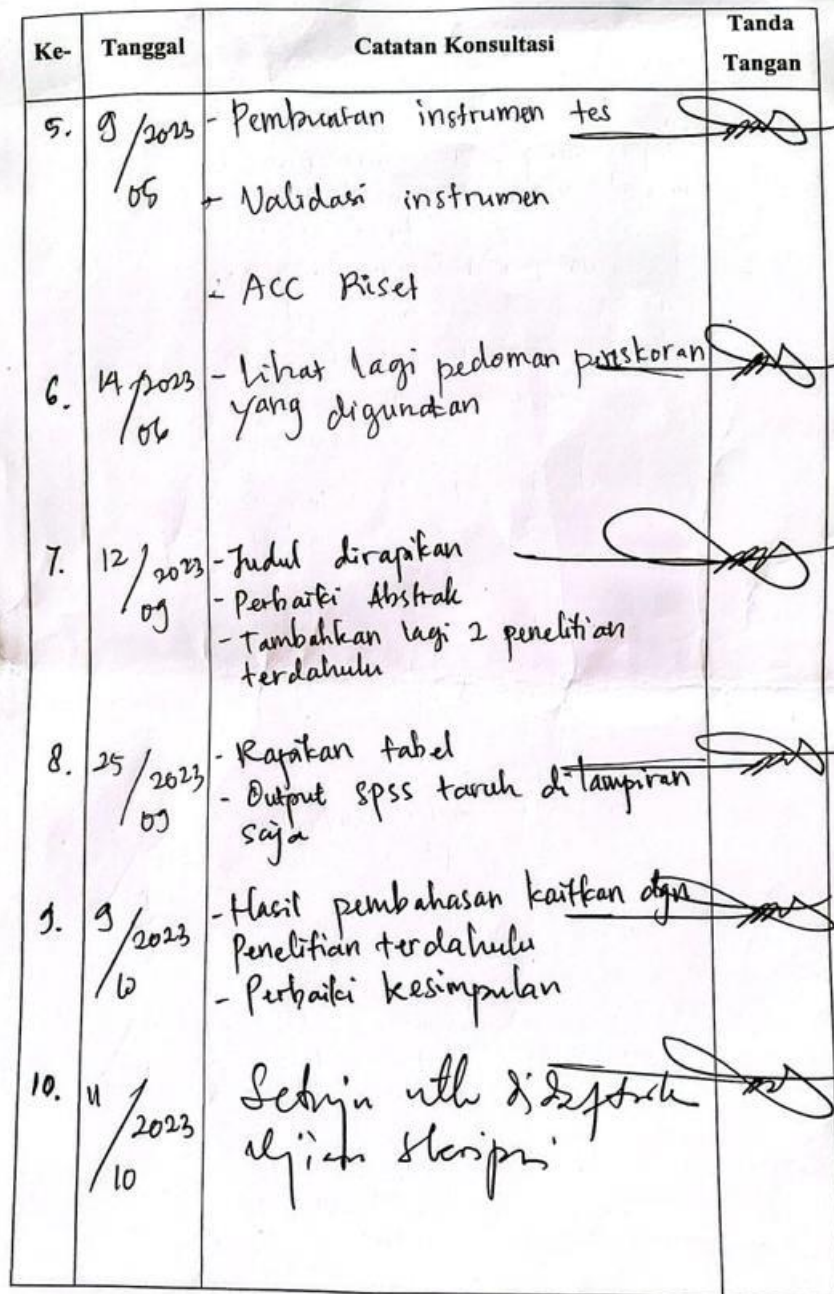 Ke- Tanggal Catatan Konsultasi Tanda Tangan
5. 9/05 2023 - Pembuatan instrumen tes
- Validasi instrumen
- ACC Riset
6. 14/06 2023 - Lihat lagi pedoman penskoran
yang digunakan
7. 12/09 2023 - Judul dirapikan
- Perbaiki Abstrak
- Tambahkan lagi 2 penelitian
terdahulu
8. 25/09 2023 - Rapikan tabel
- Output SPSS taruh di lampiran
saja
9. 9/10 2023 - Hasil pembahasan kaitkan dgn
Penelitian terdahulu
- Perbaiki kesimpulan
10. 11/10 2023 Setuju utk didaftark
ujian skripsi